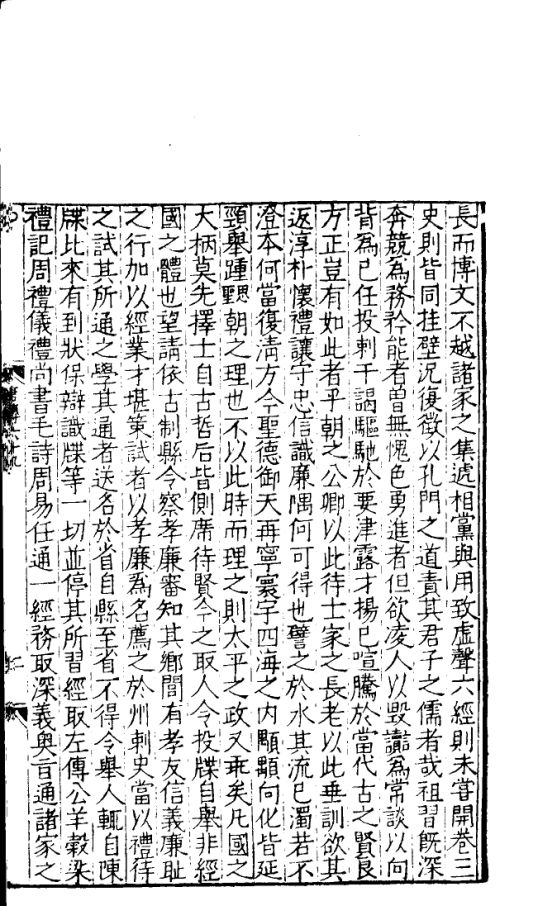 長而博文不越諸家之集遞相黨與用致虛聲六經則未甞開卷三
史則皆同挂壁況復徵以孔門之道責其君子之儒者哉祖習旣深
奔競爲務矜能者曽無愧色勇進者但欲凌人以毀讟爲常談以向
背爲己任投刺干謁驅馳於要津露才揚己喧騰於當代古之賢良
方正豈有如此者乎朝之公卿以此待士家之長老以此垂訓欲其
返淳朴懷禮讓守忠信識廉隅何可得也譬之於水其流已濁若不
澄本何當復淸方今聖德御天再寧寰宇四海之內顒顒向化皆延
頸舉踵覬朝之理也不以此時而理之則太平之政又乖矣凡國之
大柄莫先擇士自古哲后皆側席待賢今之取人令投牒自舉非經
國之體也望請依古制縣令察孝廉審知其鄕閭有孝友信義廉耻
之行加以經業才堪策試者以孝廉爲名薦之於州刺史當以禮待
之試其所通之學其通者送名於省自縣至省不得令舉人輒自陳
牒比來有到狀保辯識牒等一切並停其所習經取左傳公羊糓梁
禮記周禮儀禮尚書毛詩周易任通一經務取深義奧旨通諸家之